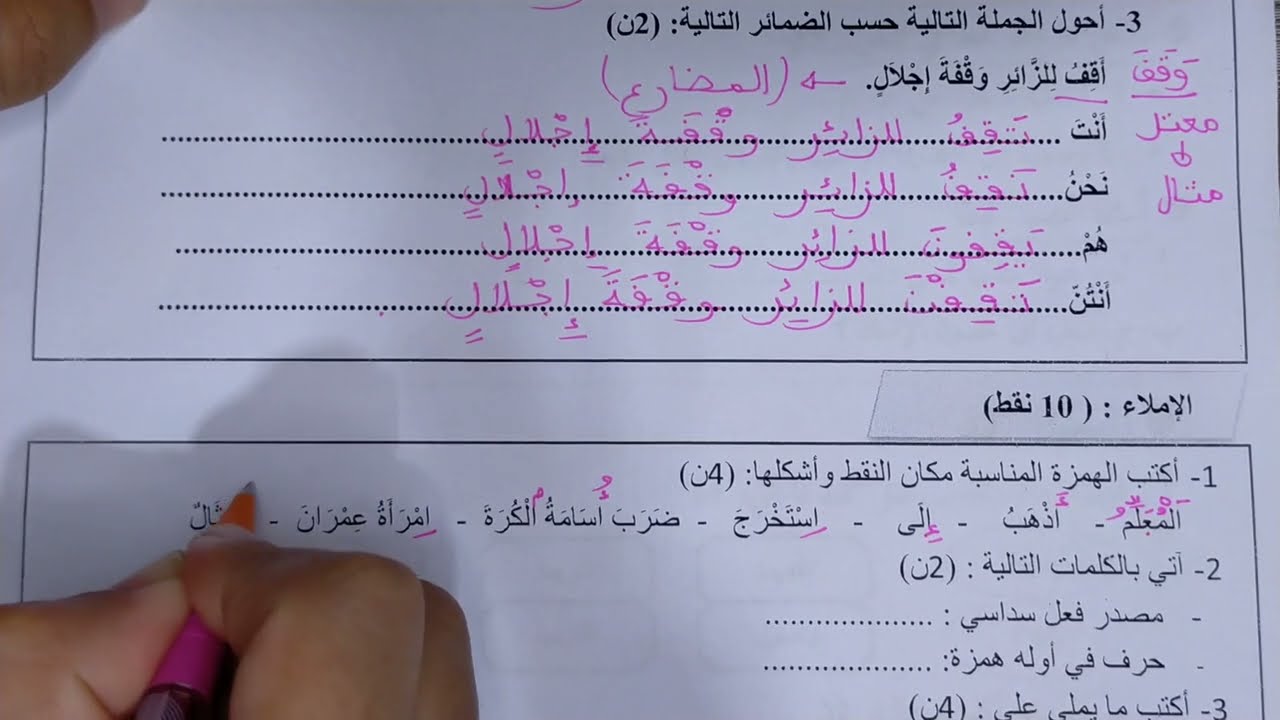 3- أحول الجملة التالية حسب الضمائر التالية: (2ن)
أَقِفُ لِلزَّائِرِ وَقْفَةَ إِجْلاَلٍ. ← (المضارع) وَقَفَ
أَنْتَ ..... تَقِفُ للزائِرِ وقْفَةَ إِجْلالٍ ..... معتل
نَحْنُ ..... نَقِفُ للزائِرِ وقْفَةَ إجْلالٍ ..... مثال
هُمْ ..... يَقِفونَ للزائِر وقْفَةَ إِجْلالٍ .....
أَنْتُنّ ..... تَقِفْنَ للزايْرِ وقْفَةَ إِجْلَالٍ .....
الإملاء : ( 10 نقط)
1- أكتب الهمزة المناسبة مكان النقط وأشكلها: (4ن)
اَلْمُعَلِّمُ - أَذْهَبُ - إِلَى - اِسْتَخْرَجَ - ضَرَبَ أُسَامَةُ الْكُرَةَ - اِمْرَأَةُ عِمْرَانَ -
2- آتي بالكلمات التالية : (2ن)
- مصدر فعل سداسي : ....................
- حرف في أوله همزة: ....................
3- أكتب ما يملى علي : (4ن)